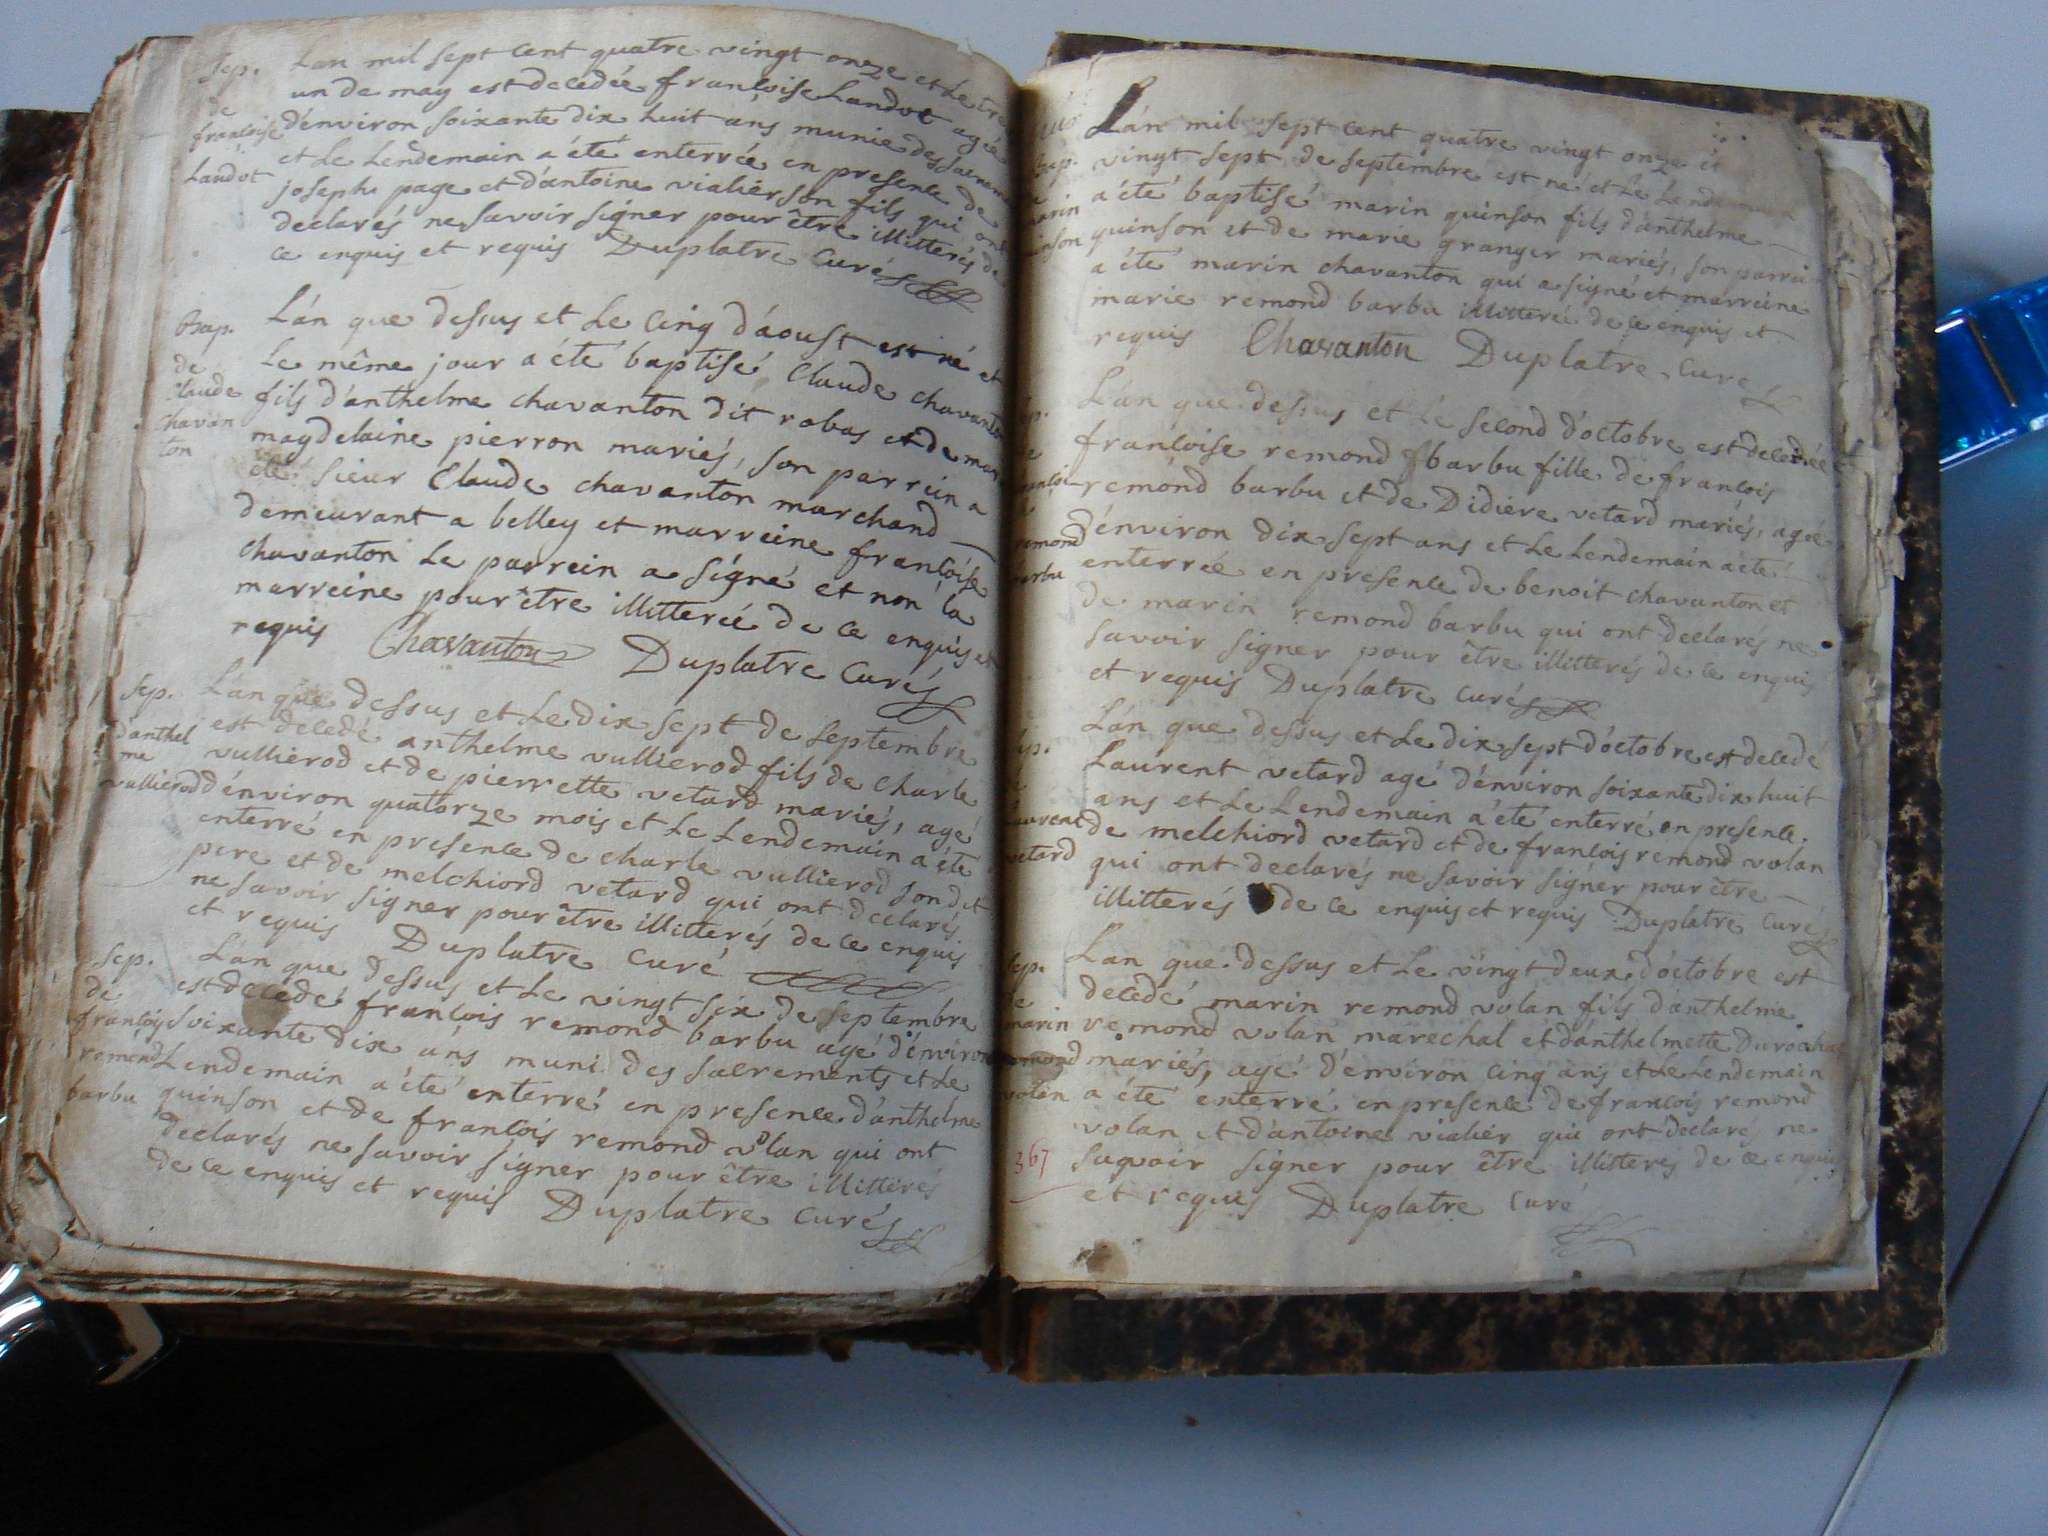 Sep.
de
françoise
Landot
Lan mil sept cent quatre vingt onze et Le
un de may est decedée françoise Landot agée
d'environ soixante dix huit ans munie des
et Le Lendemain a été enterrée en presence de
joseph page et d'antoine vialier son fils qui ont
declarés ne savoir signer pour être illitterés de
ce enquis et requis Duplatre Curé
Bap.
de
Claude
Chavan
ton
L'an que dessus et Le Cinq d'áoust est né et
Le même jour a été baptisé Claude chavanton
fils d'anthelme chavanton dit robas et de
magdelaine pierron mariés, son parrein a
été sieur Claude chavanton marchand
demeurant a belley et marreine françoise
chavanton Le parrein a signé et non la
marreine pour être illitterée de ce enquis et
requis Chavanton Duplatre Curé
Sep.
d'anthel
me
vullierod
L'an que dessus et Le dix sept de septembre
est decedé anthelme vullierod fils de Charle
vullierod et de pierrette vetard mariés, agé
d'environ quatorze mois et Le Lendemain a été
enterré en presence de charle vullierod son dit
pere et de melchiord vetard qui ont declarés
ne savoir signer pour être illitterés de ce enquis
et requis Duplatre Curé
Sep.
de
françois
remond
barbu
L'an que dessus et Le vingt six de septembre
est decédé françois remond barbu agé d'environ
soixante dix ans muni des sacrements et Le
Lendemain a été enterré en presence d'anthelme
quinson et de françois remond volan qui ont
declarés ne savoir signer pour être illitterés
de ce enquis et requis Duplatre Curé
Bap.
marin
L'an mil sept cent quatre vingt onze et
vingt sept de septembre est né et Le Lendemain
a été baptisé marin quinson fils d'anthelme
quinson et de marie granger mariés, son parrein
a été marin chavanton qui a signé et marreine
marie remond barbu illitterée de ce enquis et
requis Chavanton Duplatre Curé
remond
barbu
L'an que dessus et Le second d'octobre est decedée
françoise remond barbu fille de françois
remond barbu et de Didiere vetard mariés, agée
d'environ dix sept ans et Le Lendemain a été
enterrée en presence de benoit chavanton et
de marin remond barbu qui ont declarés ne
savoir signer pour être illitterés de ce enquis
et requis Duplatre Curé
Sep.
Laurent
vetard
L'an que dessus et Le dix sept d'octobre est decedé
Laurent vetard agé d'environ soixante dix huit
ans et Le Lendemain a été enterré en presence
de melchiord vetard et de françois remond volan
qui ont declarés ne savoir signer pour être
illitterés de ce enquis et requis Duplatre Curé
Sep.
de
marin
remond
volan
L'an que dessus et Le vingt deux d'octobre est
decedé marin remond volan fils d'anthelme
remond volan marechal et d'anthelmette
mariés, agé d'environ cinq ans et Le Lendemain
a été enterré en presence de françois remond
volan et d'antoine vialier qui ont declaré ne
sçavoir signer pour être illitterés de ce enquis
et requis Duplatre Curé
367